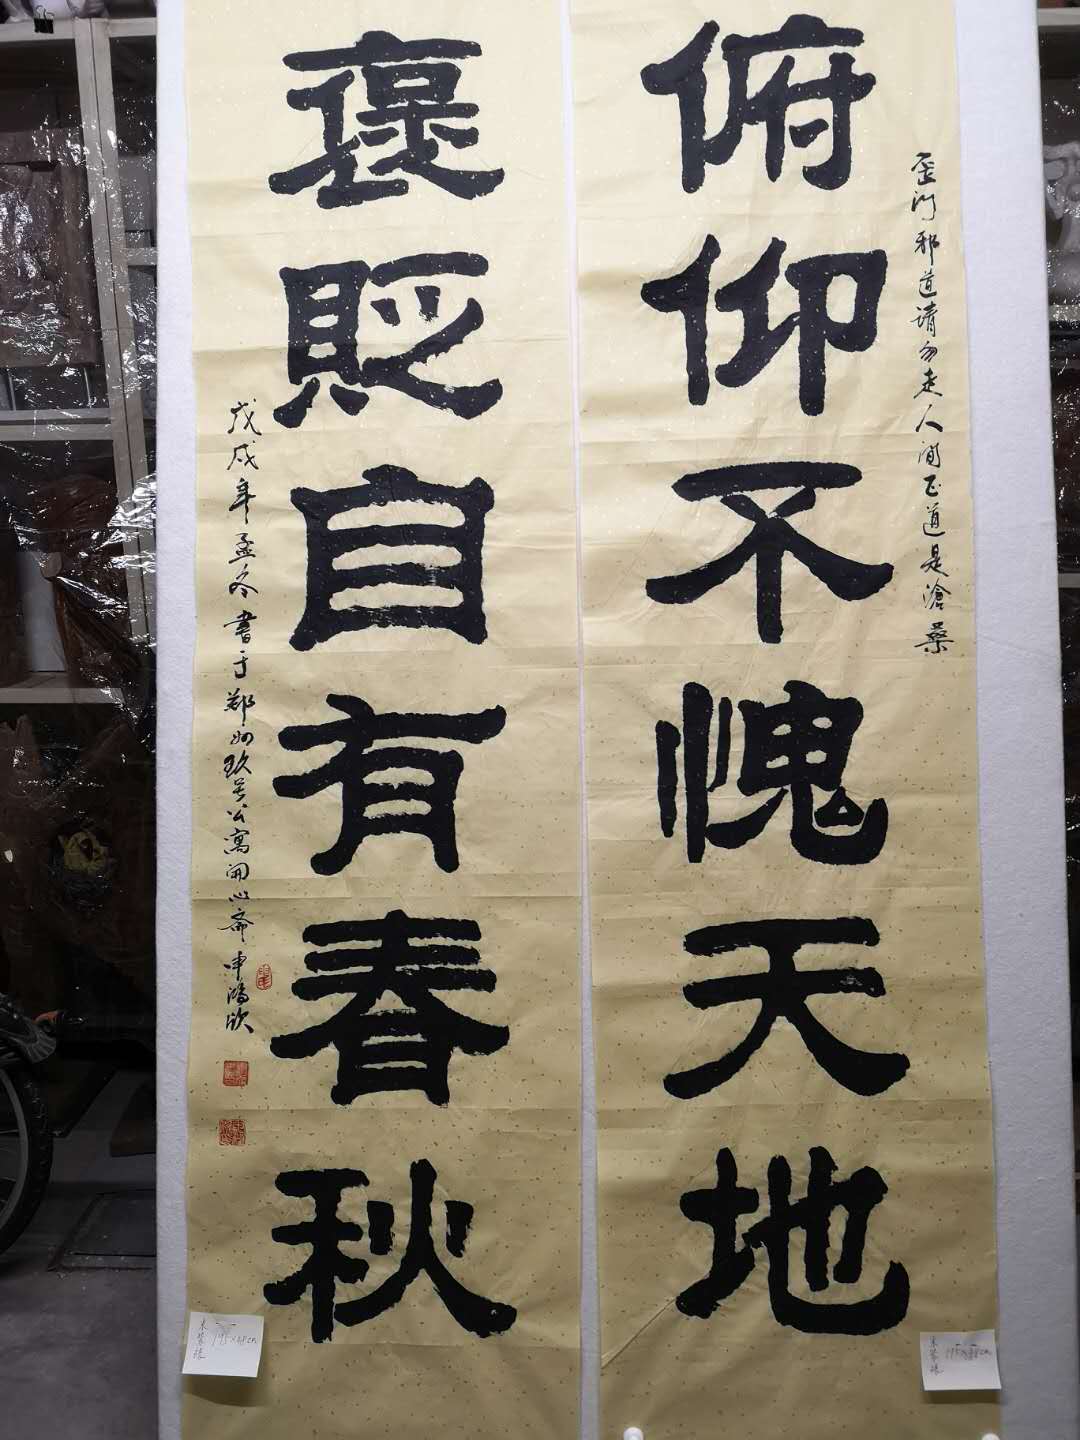 歪门邪道请勿走人间正道是沧桑
俯仰不愧天地
褒贬自有春秋
戊戌年孟冬书于郑州玖号公寓开心斋申鸿欣
175×48cm
175×48cm